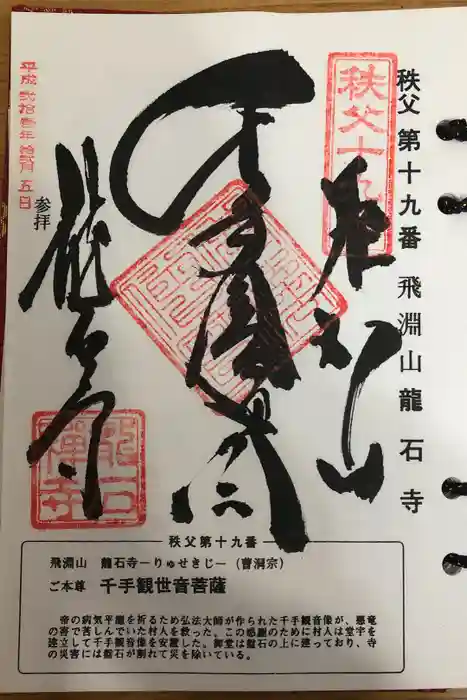 秩父 第十九番 飛淵山 龍石寺
秩父十九
千手
龍石寺
平成弐拾壱年拾弐月五日
参拝
龍石禅寺
秩父第十九番
飛淵山 龍石寺―りゅせきじ―(曹洞宗)
ご本尊 千手観世音菩薩
帝の病気平癒を祈るため弘法大師が作られた千手観音像が、悪竜
の害で苦しんでいた村人を救った。この感謝のために村人は堂宇を
建立して千手観音像を安置した。御堂は盤石の上に建っており、寺
の災害には盤石が割れて災を除いている。